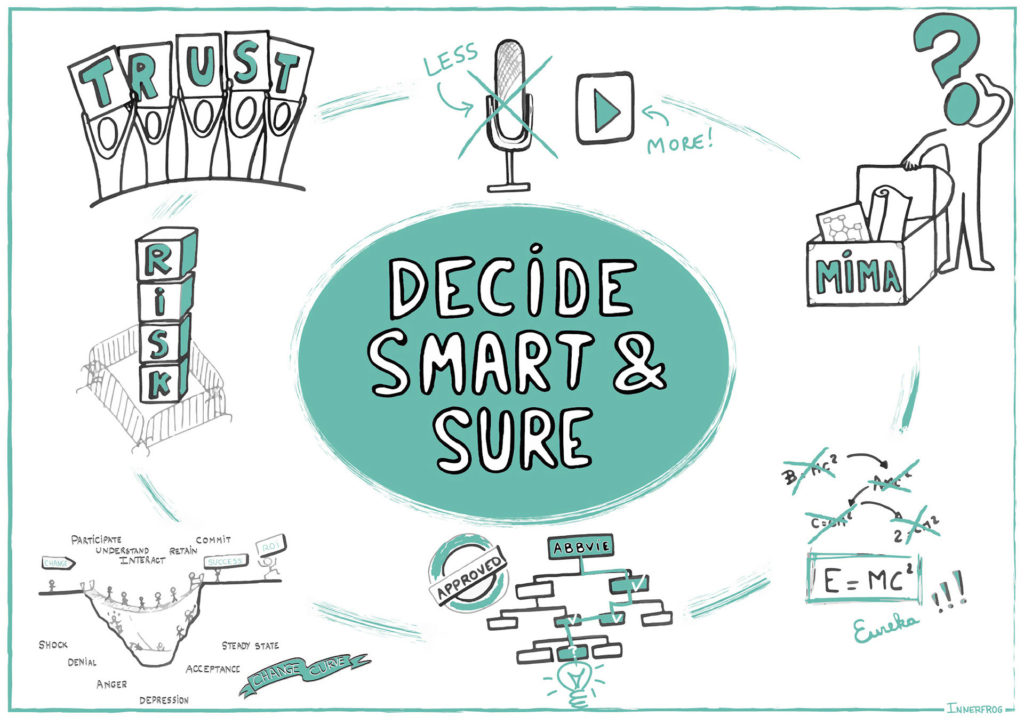 TRUST
LESS
MORE!
MIMA
RiSK
DECiDE
SMART &
SURE
B=MC²
A=MC²
E=MC²
Eureka !!!
APPROVED
ABBVIE
PARTICIPATE
UNDERSTAND
INTERACT
RETAIN
COMMIT
CHANGE
SUCCESS
ROI
SHOCK
DENIAL
ANGER
DEPRESSION
ACCEPTANCE
STEADY STATE
CHANGE CURVE
INNERFROG